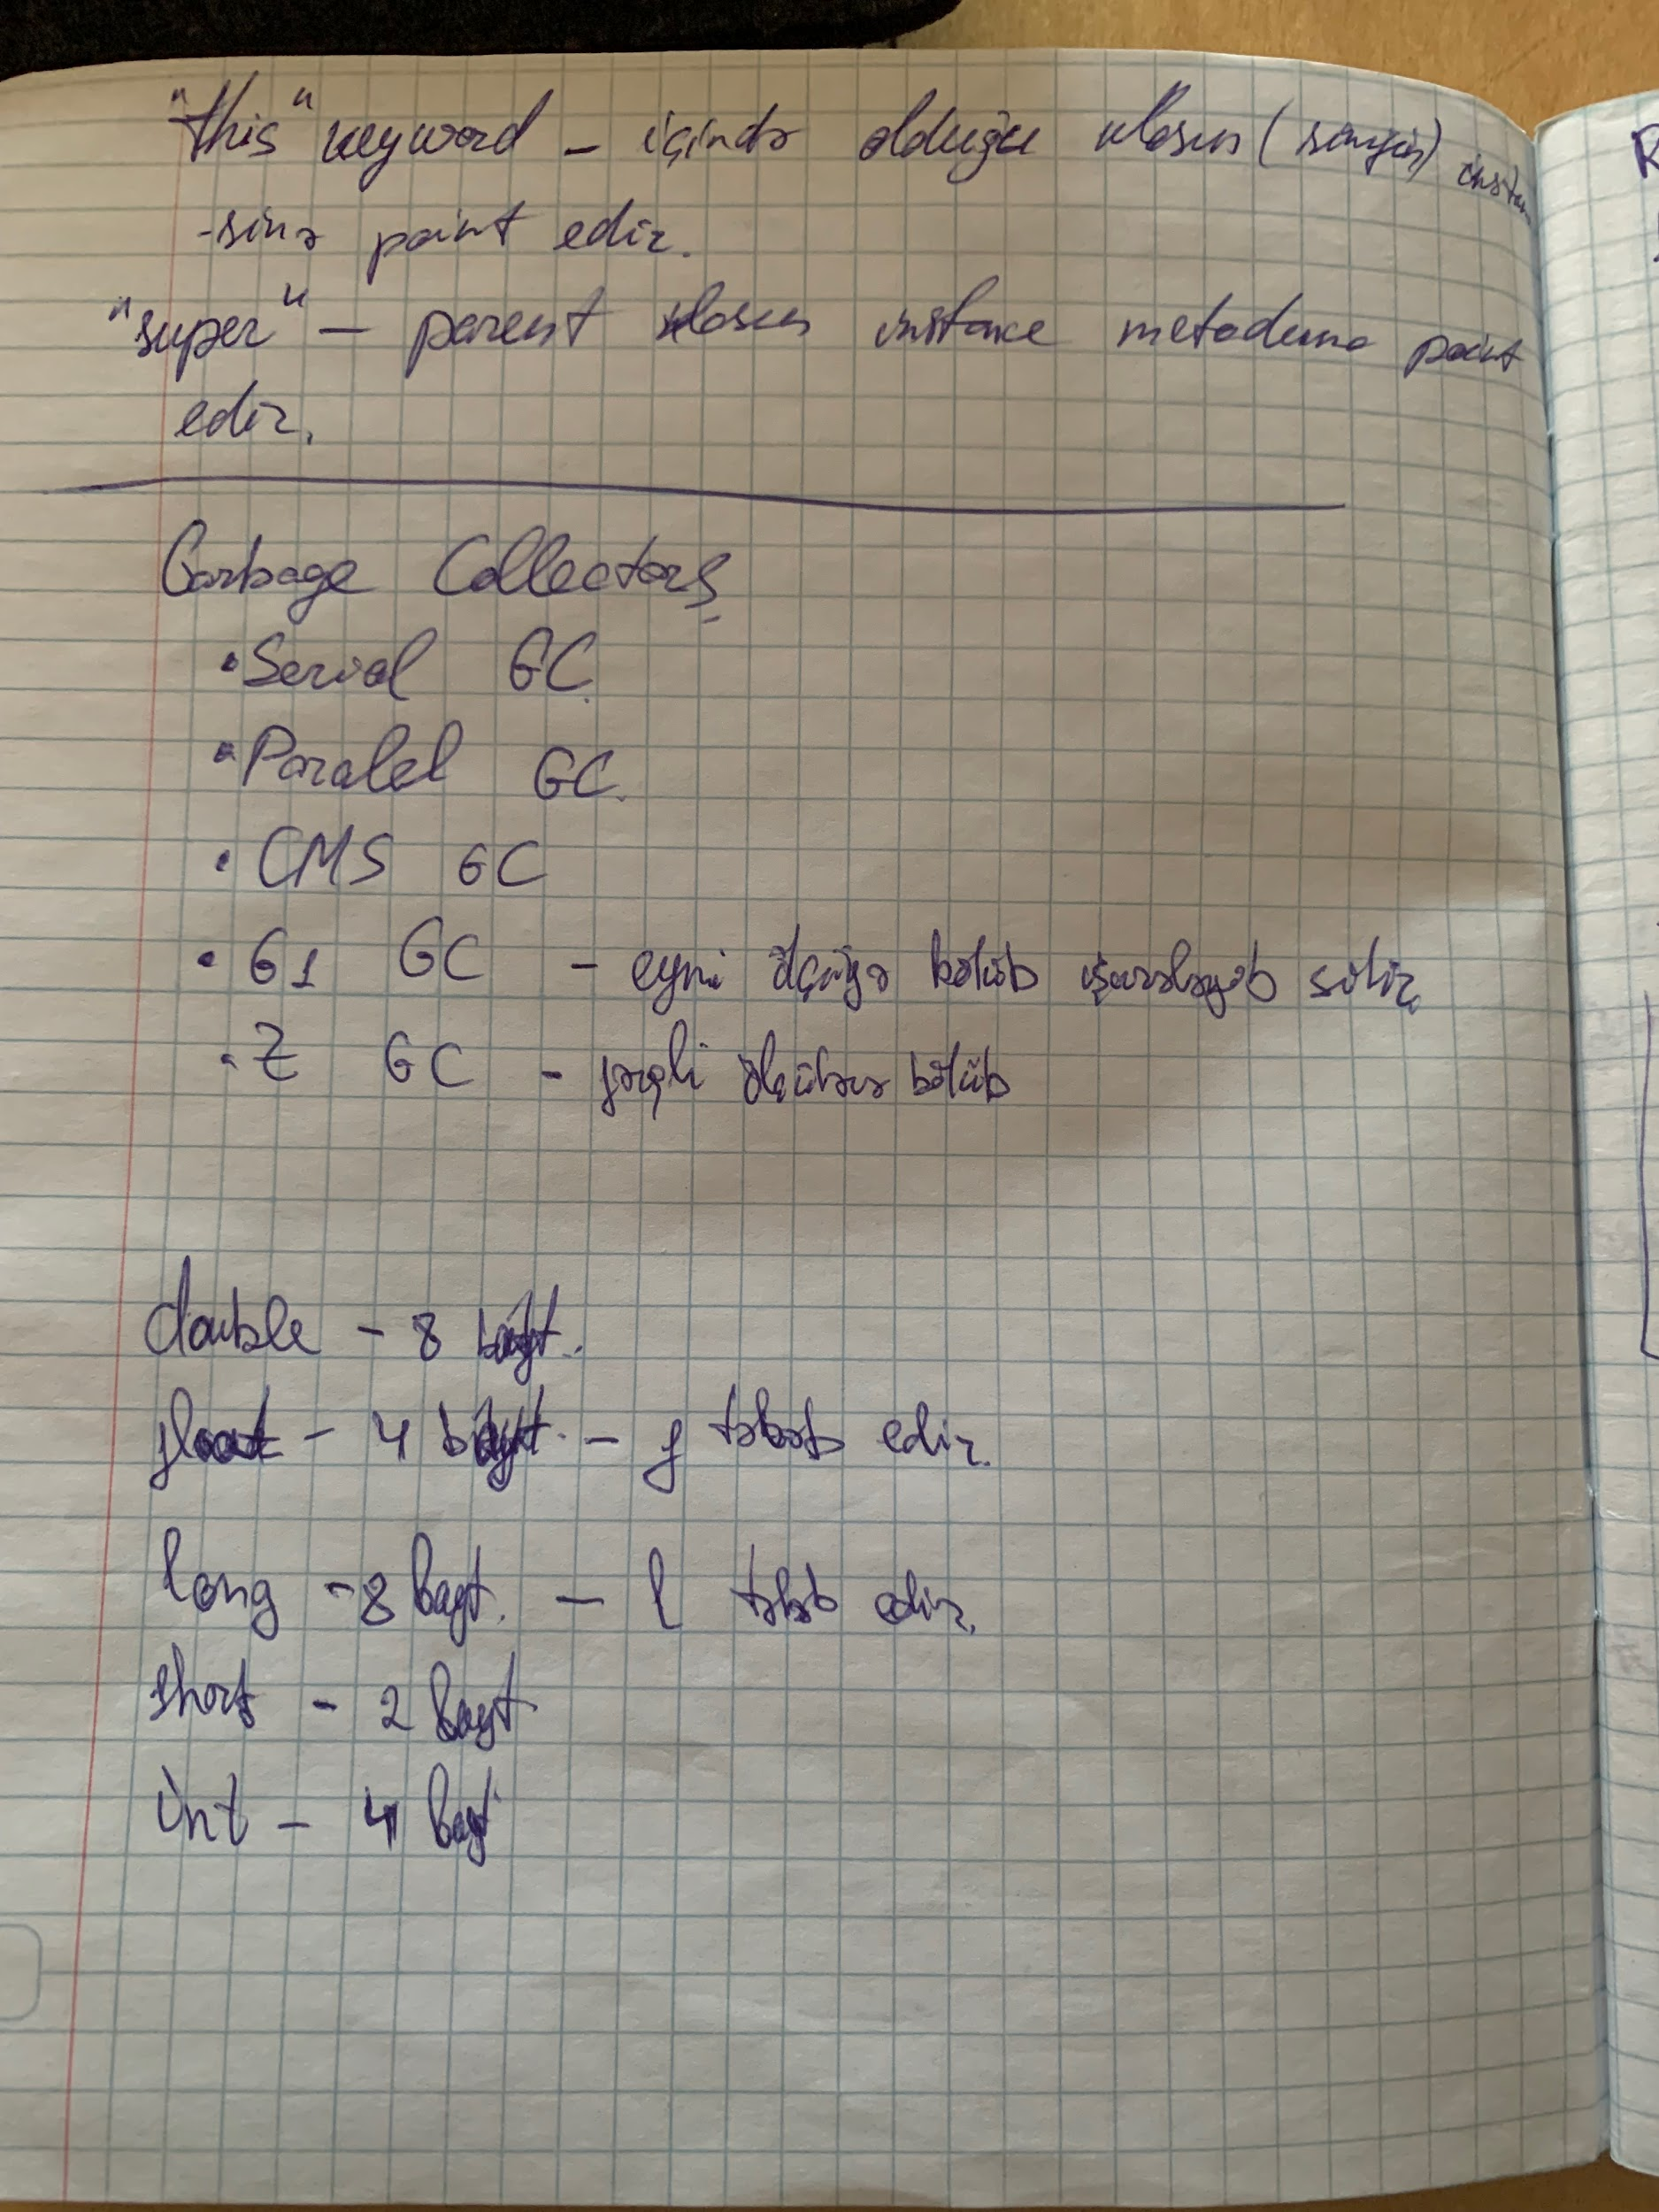 "this" keyword - içində olduğu klasın (sinfin) instan
-sinə point edir.
"super" - parent klasın instance metoduna point
edir.
Garbage Collectors
• Serial GC
• Paralel GC.
• CMS GC
• G1 GC - eyni ölçüyə bölüb işarələyəb silir.
• Z GC - fərqli ölçülərə bölüb
double - 8 bayt.
float - 4 bayt. - f tələb edir.
long - 8 bayt. - l tələb edir.
short - 2 bayt
int - 4 bayt